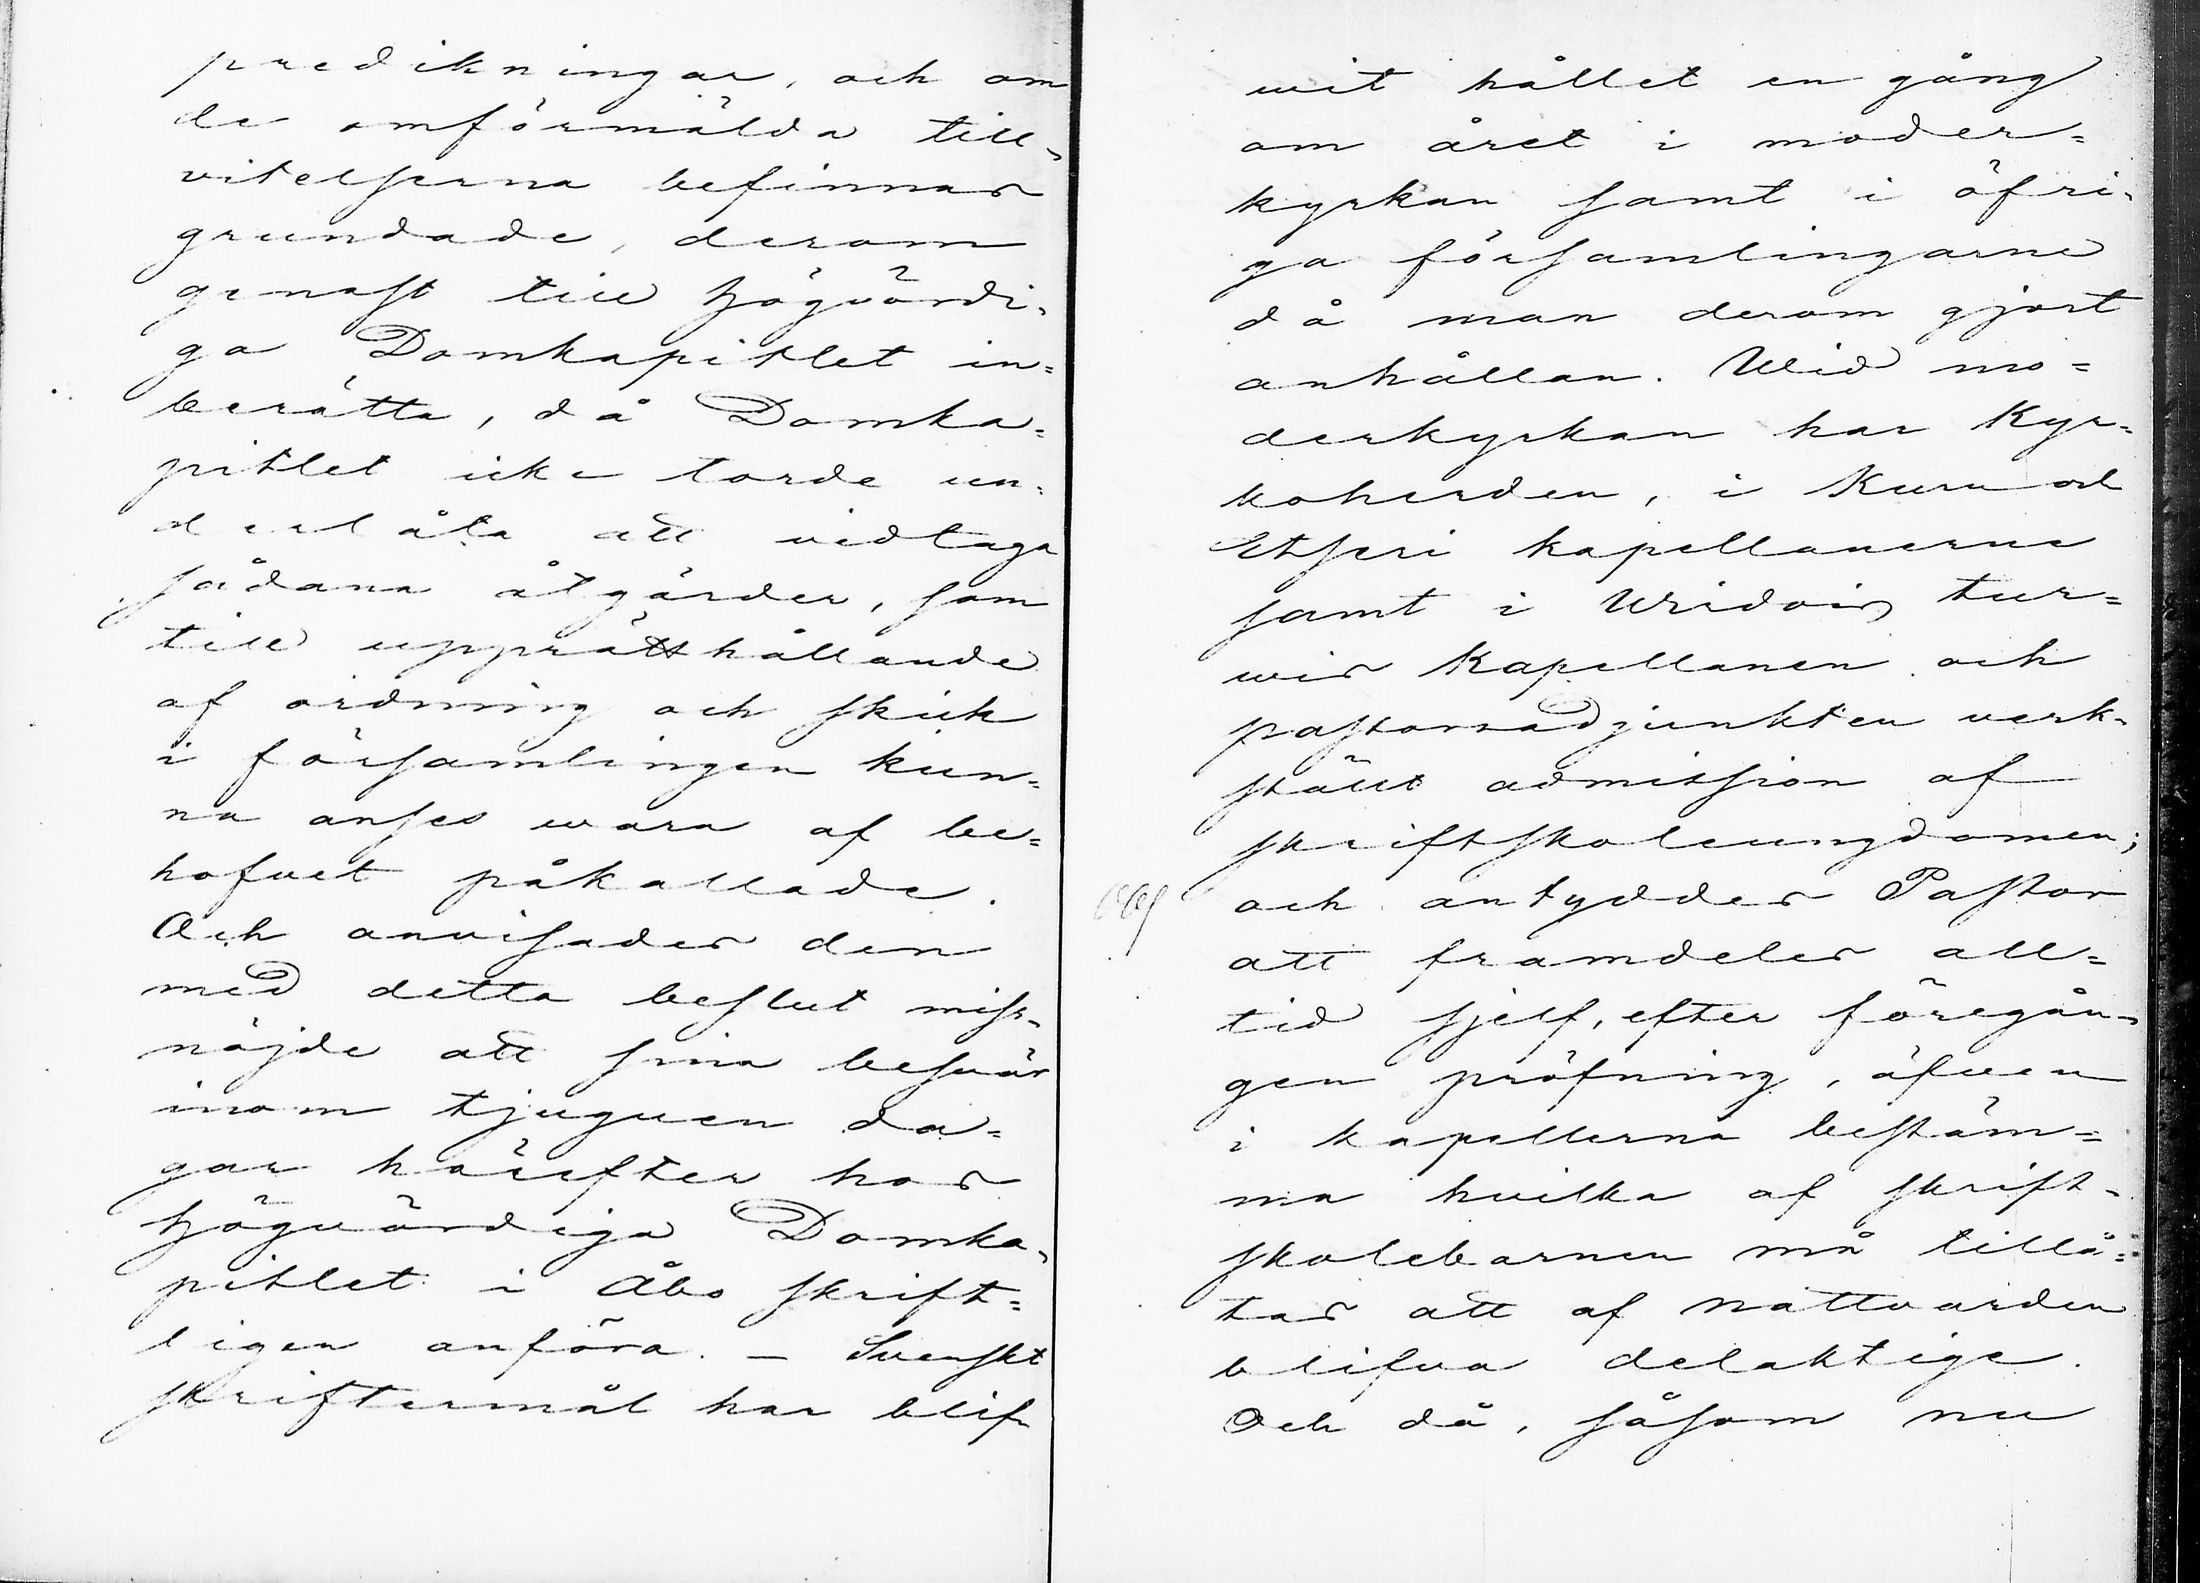 predikningar, och om
de omförmälda till-
vitelserna befinnas
grundade, derom
genast till Högvördi-
ga Domkapitlet in=
berätta, då Domka=
pitlet icke torde un-
derlåta att vidtaga
sådana åtgärder, som
till upprätthållande
af ordning och skick
i församlingen kun=
na anses wara af be=
hofvet påkallade.
Och anvisades den
med detta beslut miss-
nöjde att sina besvär
inom tjuguen da=
gar härefter hos
Högvördiga Domka-
pitlet i Åbo skrift=
ligen anföra. – Svenskt
skriftermål har blif
wit hållet en gång
om året i moder=
kyrkan samt i öfri-
ga församlingarne
då man derom gjort
anhållan. Wid mo=
derkyrkan har Kyr=
koherden, i Kuru och
Etseri kapellanerne
samt i Wirdois tur=
wis Kapellanen och
pastorsadjunkten verk-
ställt admission af
skriftskoleungdomen;
och antyddes Pastor
att framdeles all=
tid sjelf, efter föregån-
gen pröfning, äfven
i kapellerna bestäm=
ma hvilka af skrift-
skolebarnen må tillå=
tas att af nattvarden
blifva delaktige.
Och då, såsom nu